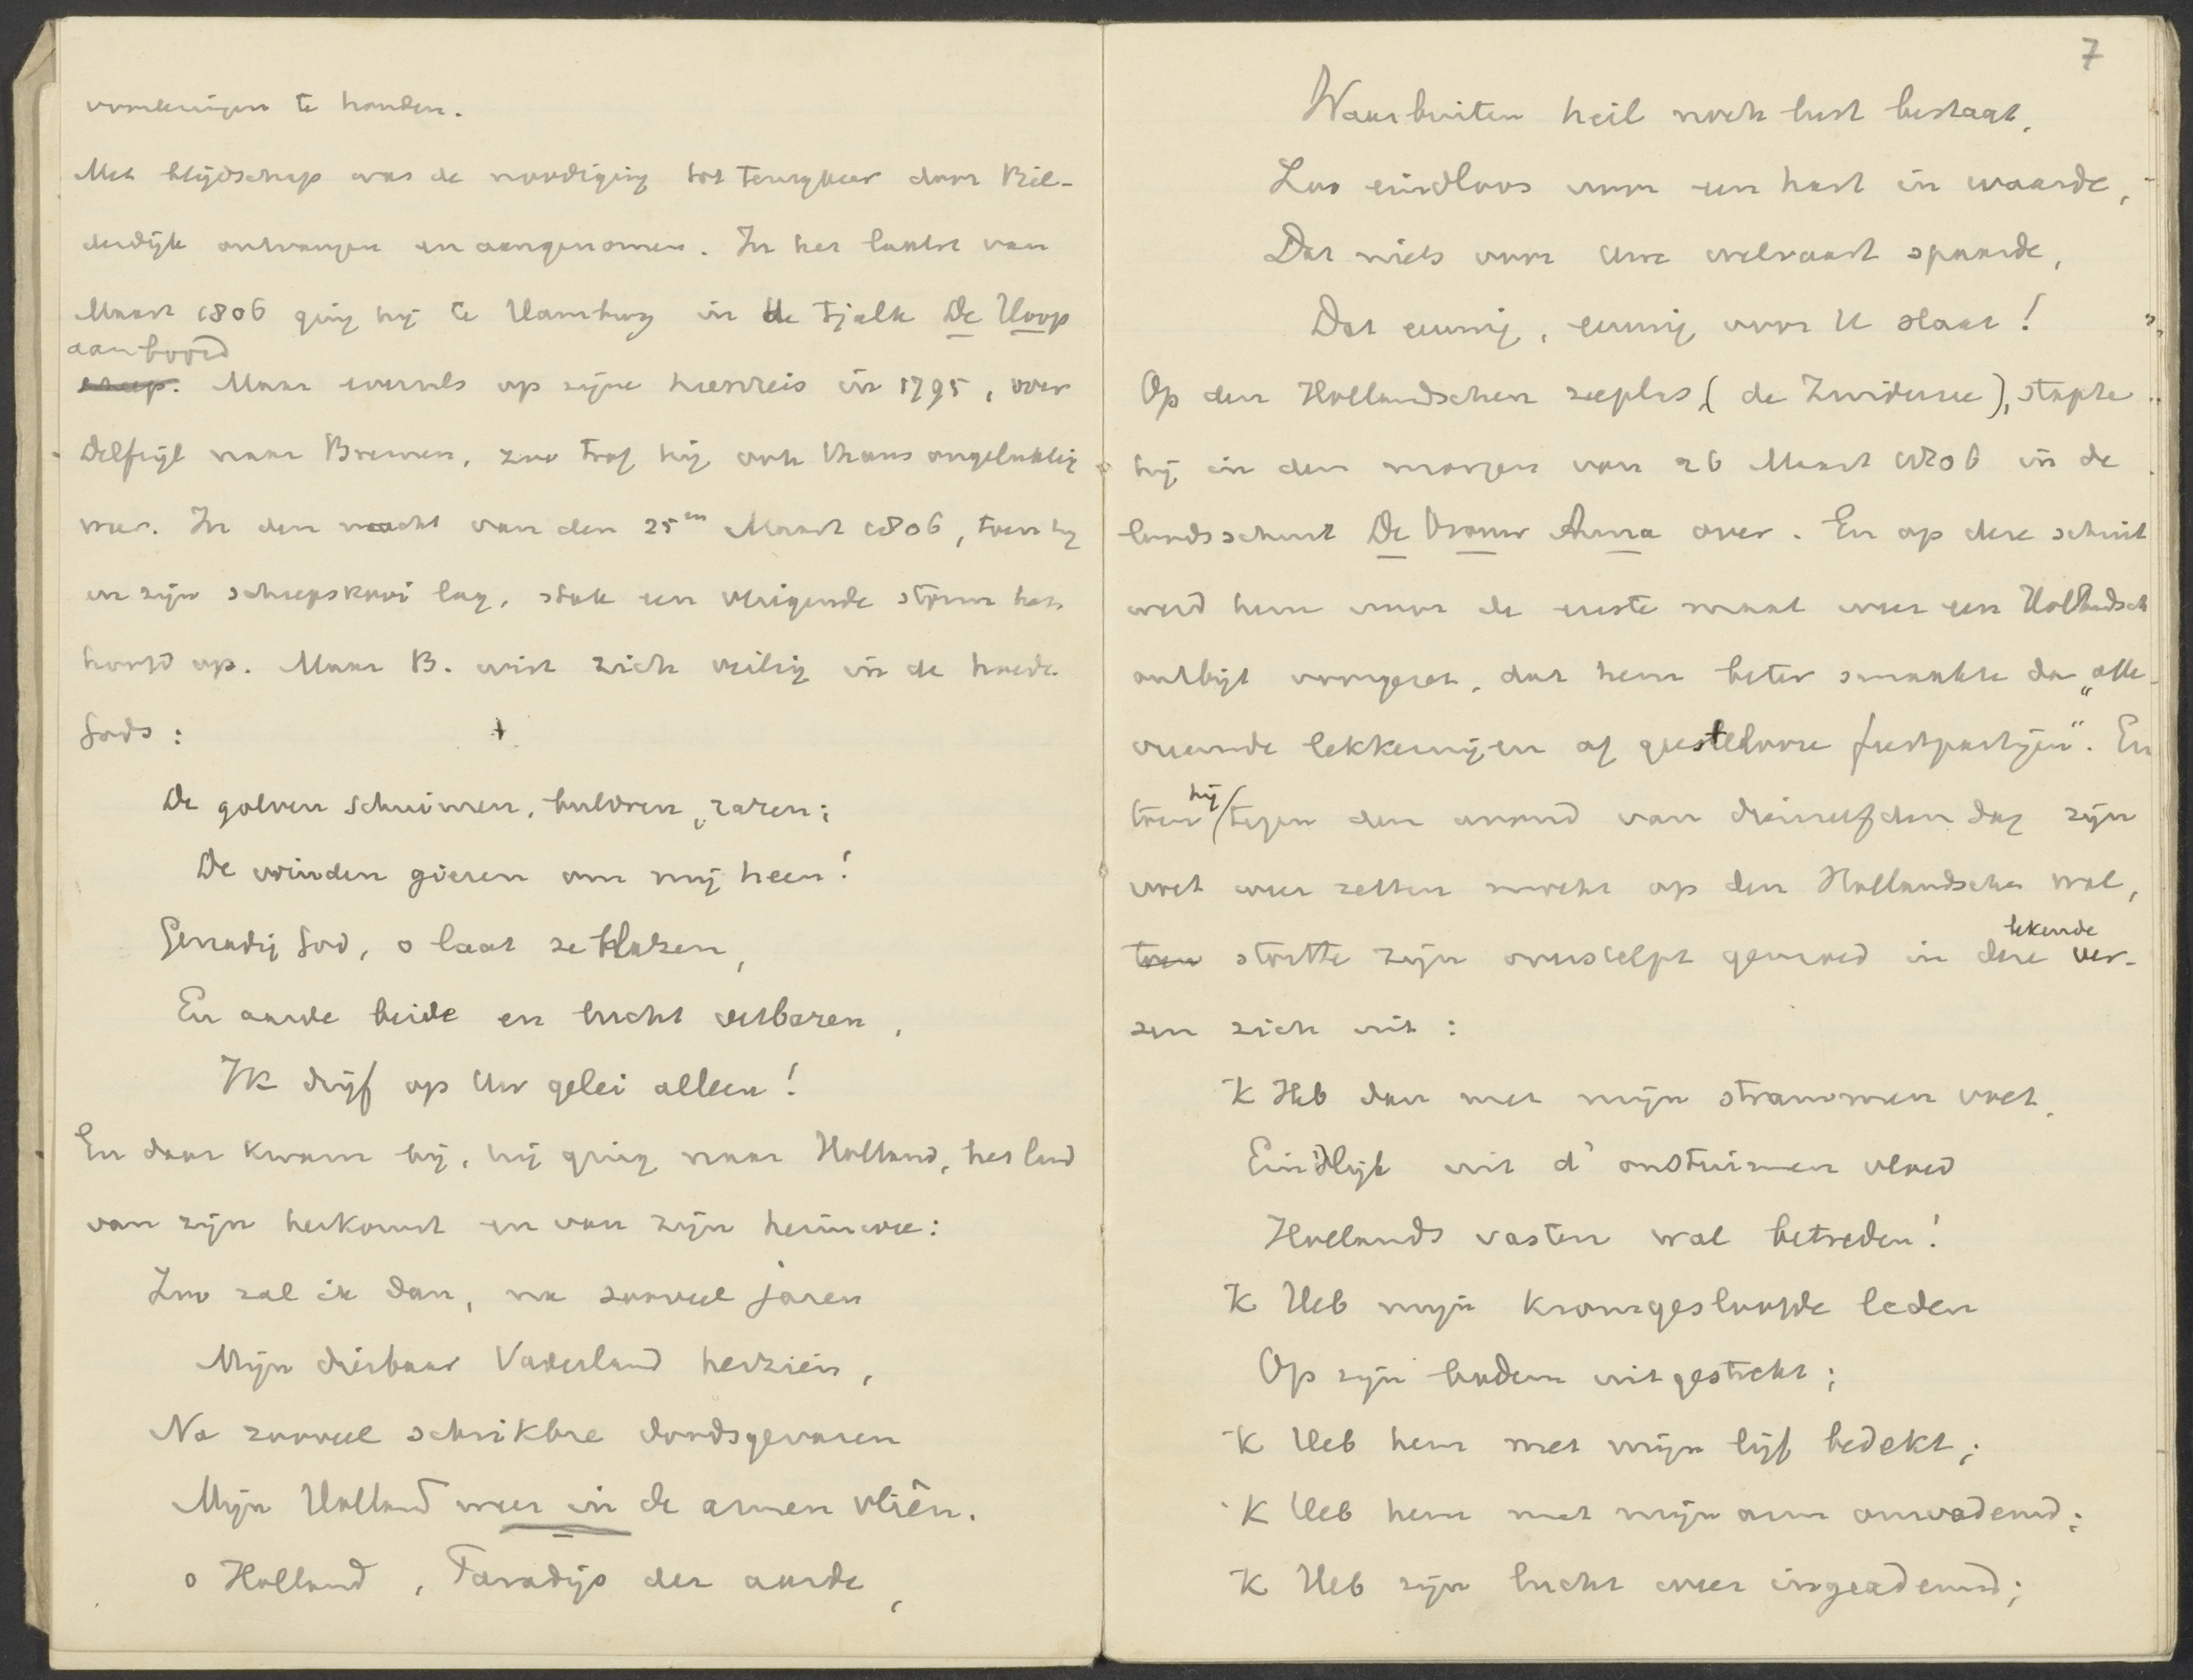 voorlezingen te houden.
Met blijdschap was de noodiging tot terugkeer door Bil-
derdijk ontvangen en aangenomen. In het laatst van
Maart 1806 ging hij te Hamburg in de tjalk De Hoop
aan boord
scheep. Maar evenals op zijne heenreis in 1795, over
Delfzijl naar Bremen, zoo trof hij ook thans ongelukkig
weer. In den nacht van den 25en Maart 1806, toen hij
in zijn scheepskooi lag, stak een dreigende storm het
hoofd op. Maar B. wist zich veilig in de hoede
Gods:
De golven schuimen, buldren, razen;
De winden gieren om mij heen!
Genadig God, o laat ze blazen,
En aarde beide en lucht verbazen,
Ik drijf op Uw gelei alleen!
En daar kwam hij, hij ging naar Holland, het land
van zijn herkomst en van zijn heimwee:
Zoo zal ik dan, na zooveel jaren
Mijn dierbaar Vaderland herzien,
Na zooveel schrikbre doodsgevaren
Mijn Holland weer in de armen vliên.
o Holland, Paradijs der aarde,
7
Waarbuiten heil noch lust bestaat,
Zoo eindloos voor een hart in waarde,
Dat niets voor Uwe welvaart spaarde,
Dat eeuwig, eeuwig voor U slaat!
Op den Hollandschen zeeplas, (de Zuiderzee), stapte
hij in den morgen van 26 Maart 1806 in de
landsschuit De Vrouw Anna over. En op deze schuit
werd hem voor de eerste maal weer een Hollandsch
ontbijt voorgezet, dat hem beter smaakte dan „alle
vreemde lekkernijen of geestelooze feestpartijen". En
toen hij tegen den avond van dienzelfden dag zijn
voet weer zetten mocht op den Hollandschen wal,
toen stortte zijn overstelpt gemoed in deze bekende ver-
zen zich uit:
'K Heb dan met mijn strammen voet,
Eind'lijk uit d' onstuimen vloed
Hollands vasten wal betreden!
'K Heb mijn kromgesloofde leden
Op zijn bodem uitgestrekt;
'K Heb hem met mijn lijf bedekt;
'K Heb hem met mijn arm omvademd;
'K Heb zijn lucht weer ingeademd;